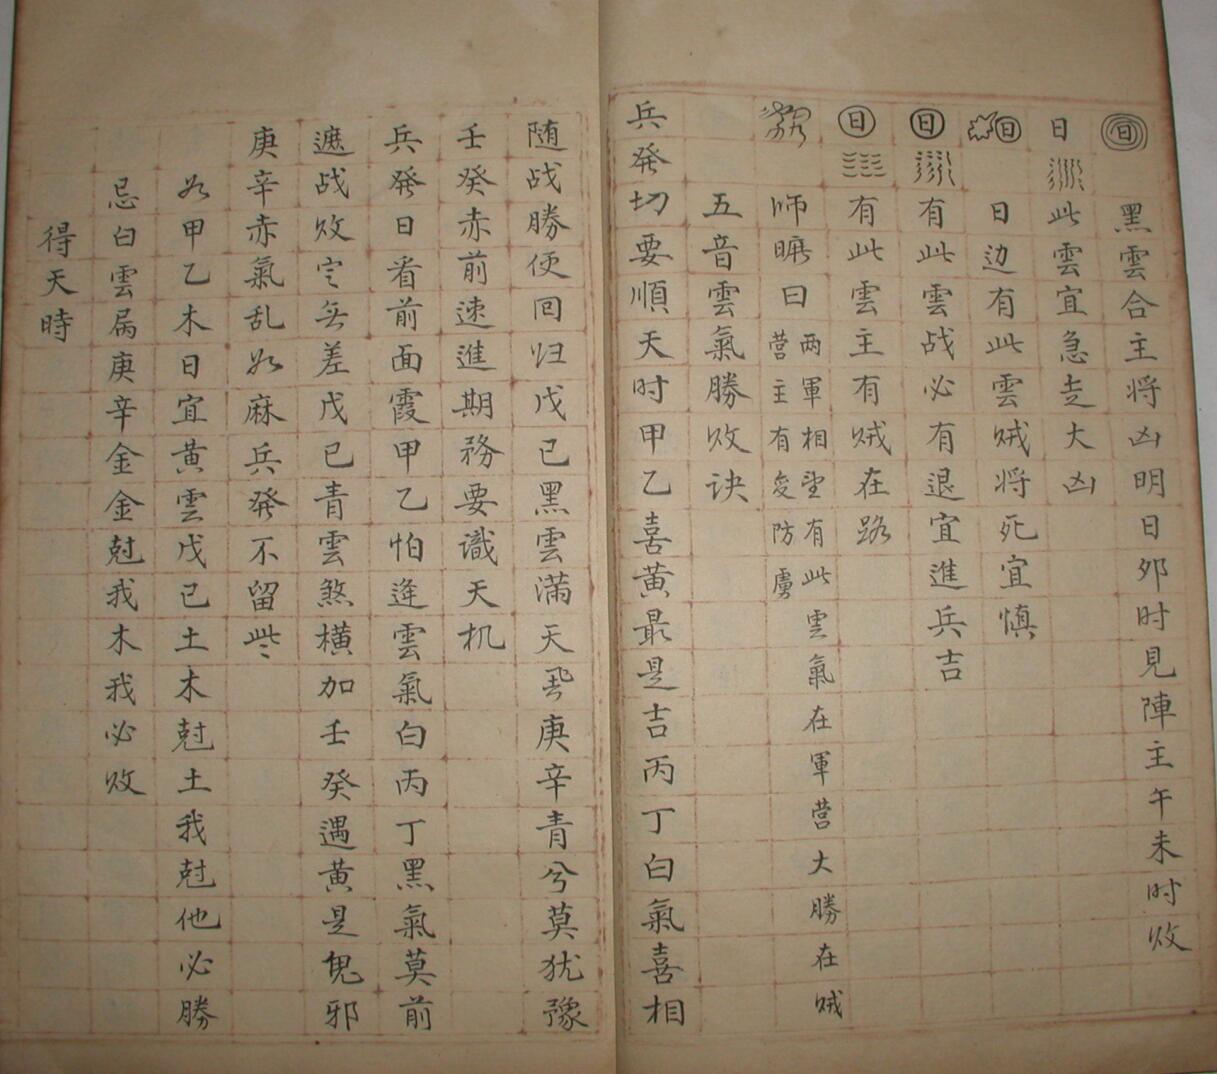 黑雲合主将凶明日夘时見陣主午未时敗
日此雲宜急走大凶
日日边有此雲贼将死宜慎
日有此雲战必有退宜進兵吉
日有此雲主有贼在路
师曠曰两軍相望有此雲氣在軍营大勝在贼
营主有変防虜
五音雲氣勝敗诀
兵発切要順天时甲乙喜黄最是吉丙丁白氣喜相
随战勝便回归戊己黑雲满天飛庚辛青兮莫犹豫
壬癸赤前速進期務要識天机
兵発日看前面霞甲乙怕逢雲氣白丙丁黑氣莫前
遮战敗定無差戊己青雲煞橫加壬癸遇黄是鬼邪
庚辛赤氣乱如麻兵発不留些
如甲乙木日宜黄雲戊己土木尅土我尅他必勝
忌白雲属庚辛金金尅我木我必敗
得天時